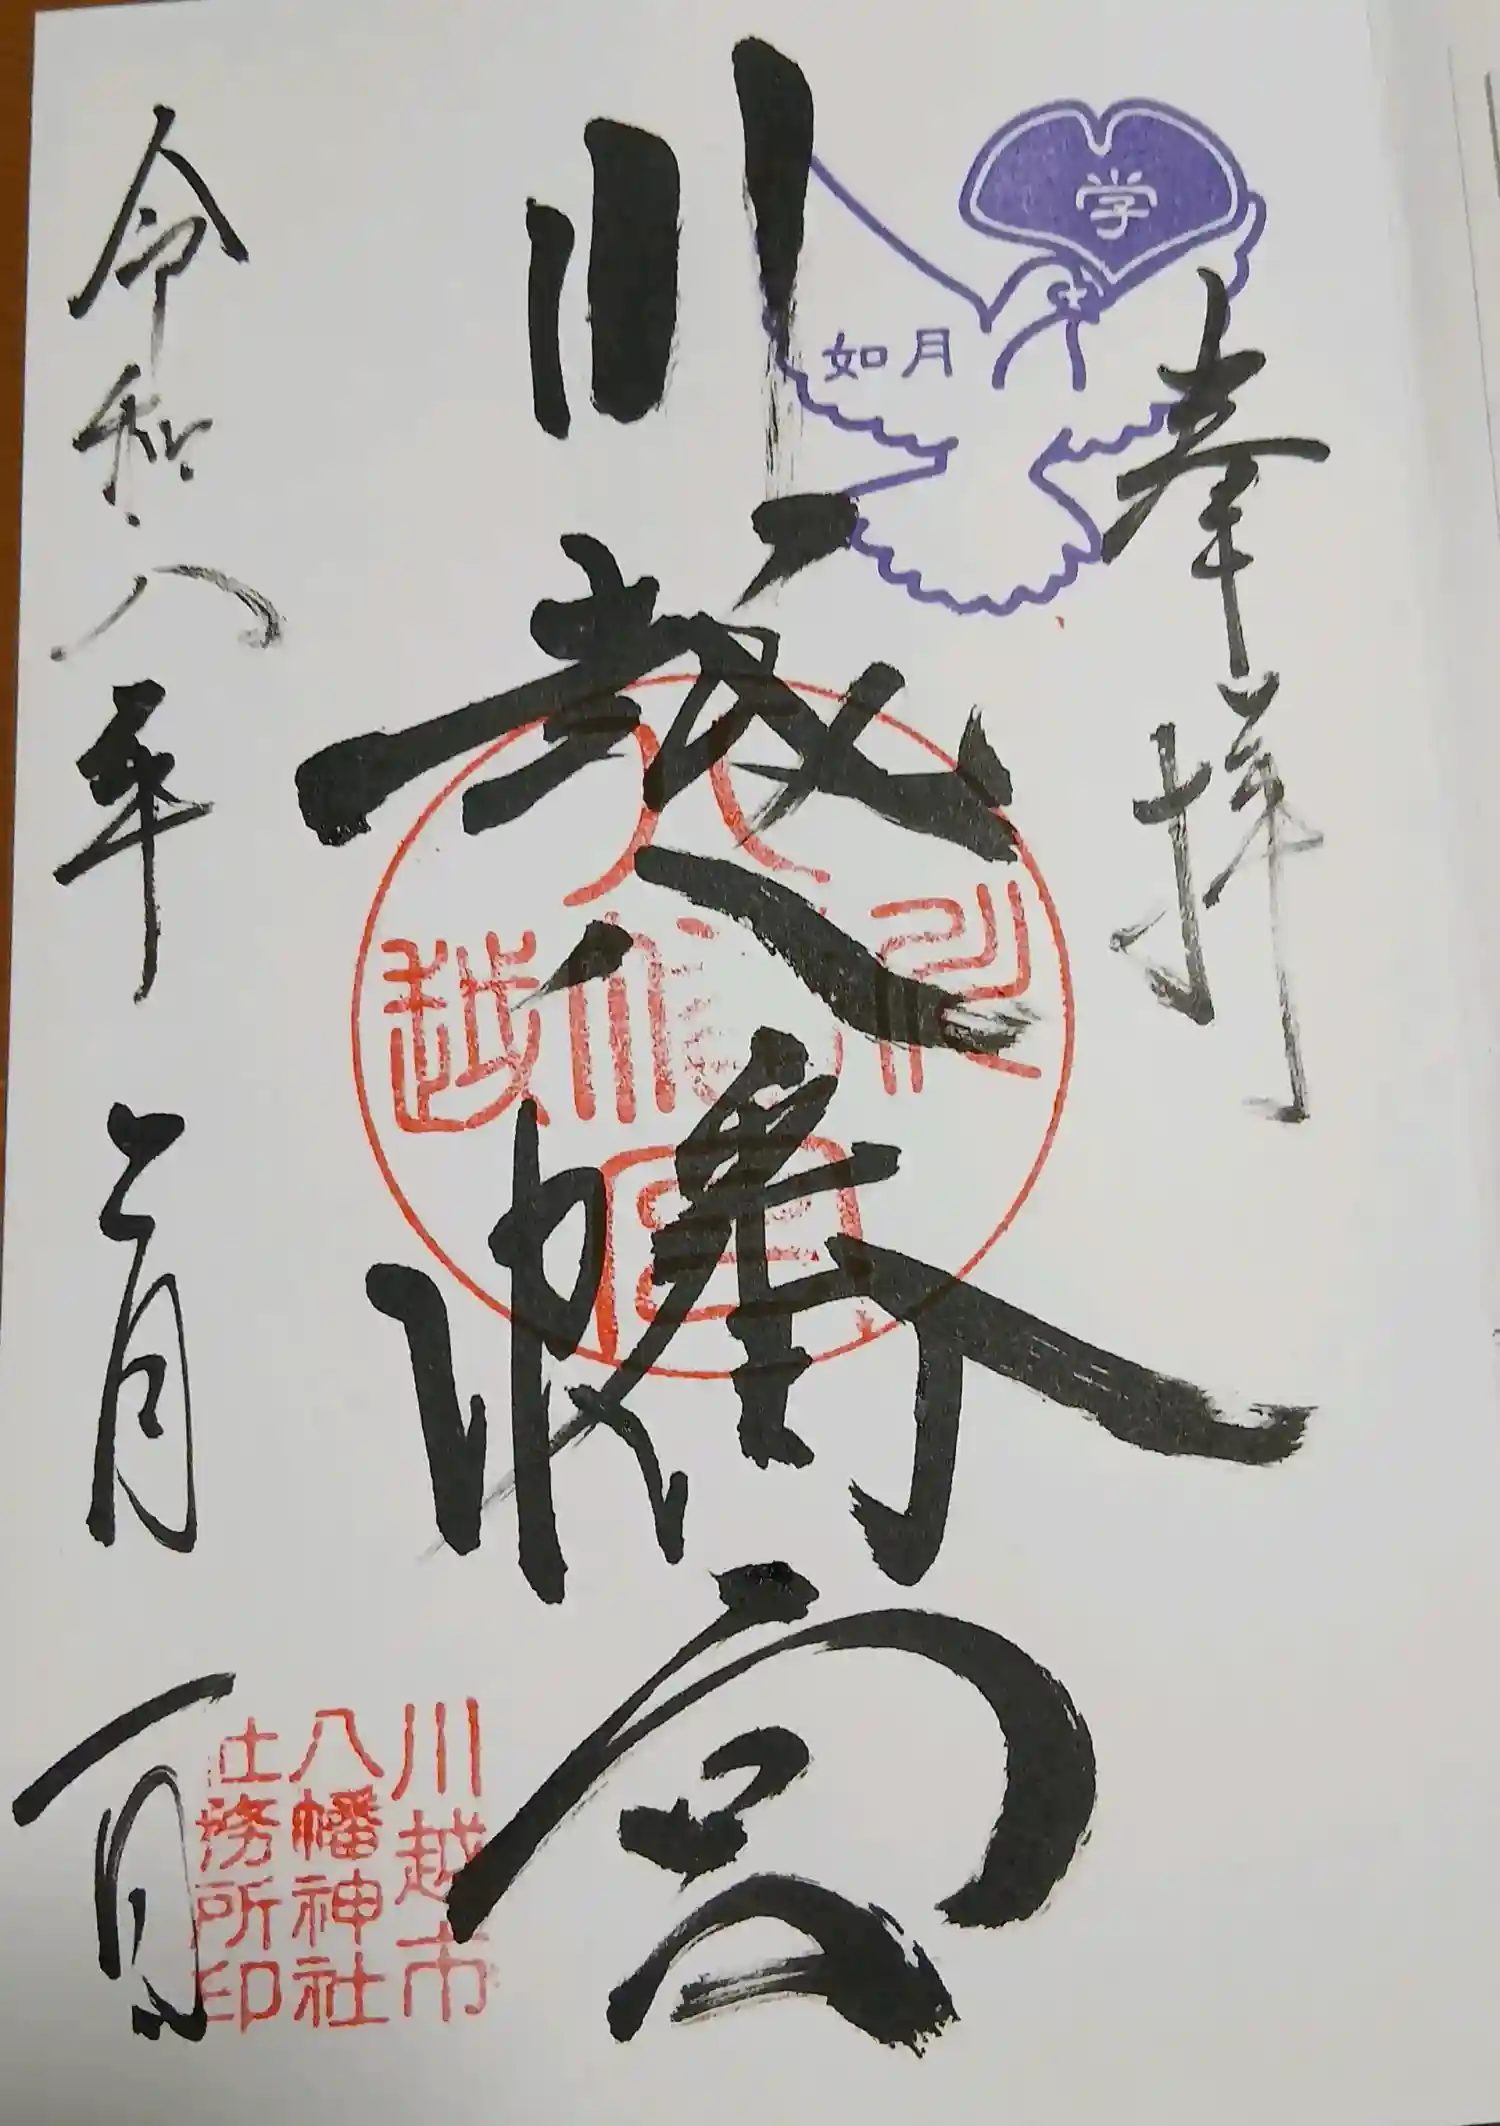 奉拝
学
如月
川越八幡宮
川越市
八幡神社
社務所印
令和八年二月一日